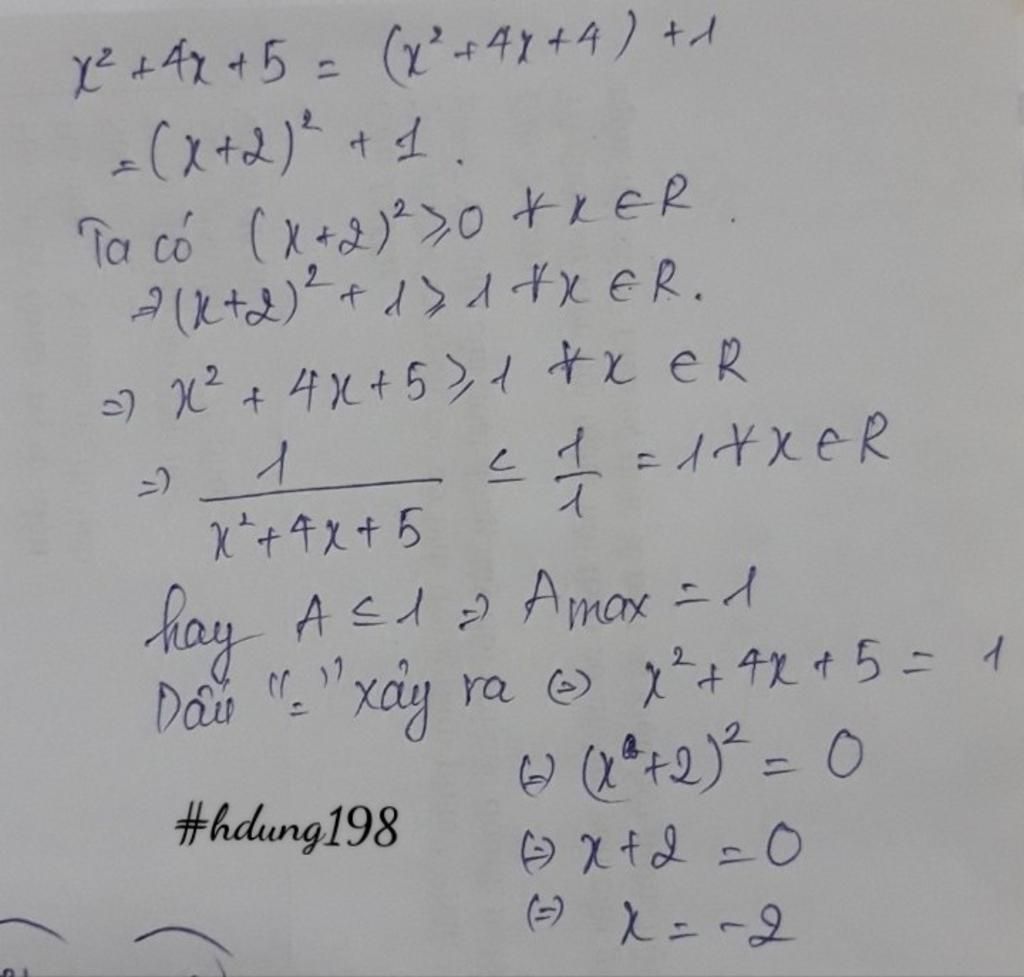 x² + 4x + 5 = (x² + 4x + 4) + 1
= (x+2)² + 1.
Ta có (x+2)² ⩾ 0 ∀x ∈ R.
⇒ (x+2)² + 1 ⩾ 1 ∀x ∈ R.
⇒ x² + 4x + 5 ⩾ 1 ∀x ∈ R
⇒ 1/(x² + 4x + 5) ≤ 1/1 = 1 ∀x ∈ R
hay A ≤ 1 ⇒ A max = 1
Dấu "=" xảy ra ⇔ x² + 4x + 5 = 1
⇔ (x+2)² = 0
#hdung198
⇔ x + 2 = 0
⇔ x = -2